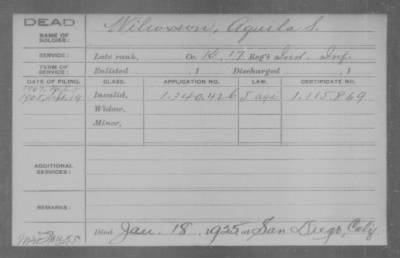 DEAD
NAME OF SOLDIER: Wilcoxson, Aquila S.
SERVICE: Late rank, Co. K, 17 Reg't Ind. Inf.
TERM OF SERVICE: Enlisted , 1 Discharged , 1
DATE OF FILING. CLASS. APPLICATION NO. LAW. CERTIFICATE NO.
1905, Sept. 19 Invalid, 1.340.426 J age 1.115.869
Widow,
Minor,
ADDITIONAL SERVICES:
REMARKS:
Died Jan. 18, 1925 at San Diego, Calif